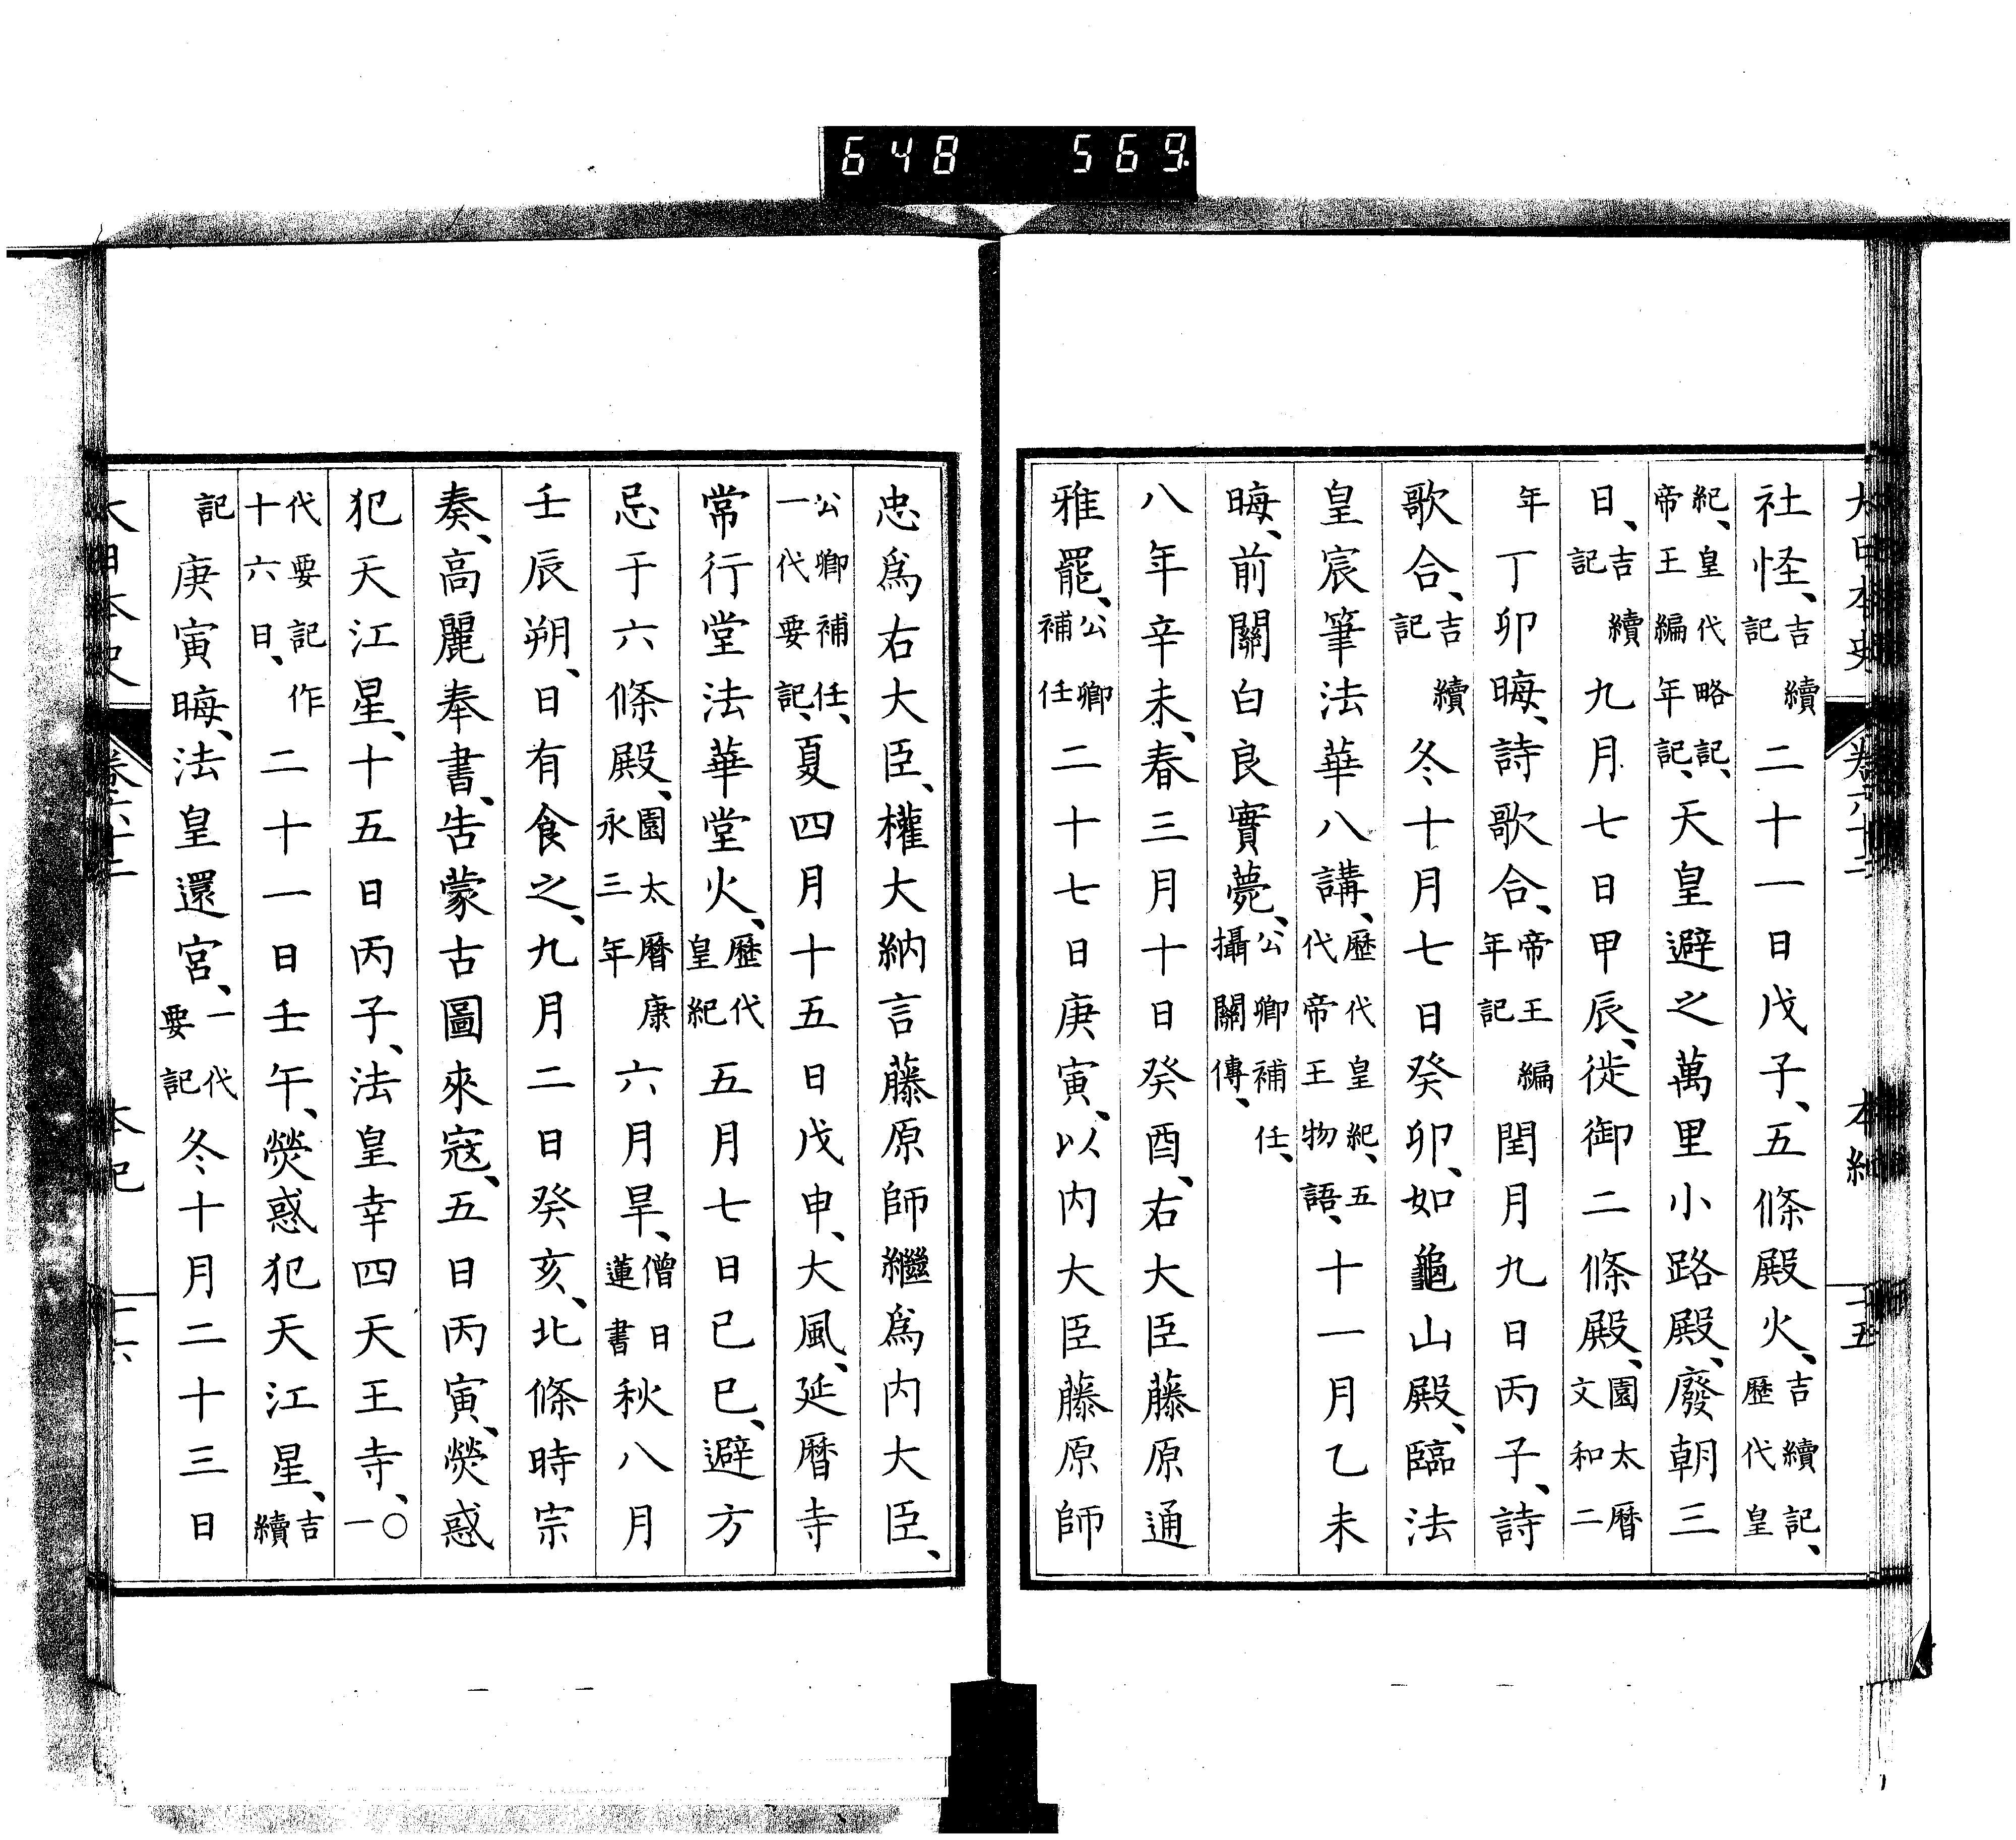 648 569
大日本史 卷六十二 本紀 二十五
社怪、吉續記二十一日戊子、五條殿火、吉續記、歷代皇
紀、皇代略記、帝王編年記、天皇避之萬里小路殿、廢朝三
日、吉續記九月七日甲辰、徙御二條殿、園太曆文和二
年丁卯晦、詩歌合、帝王編年記閏月九日丙子、詩
歌合、吉續記冬十月七日癸卯、如龜山殿、臨法
皇宸筆法華八講、歷代皇紀、五代帝王物語、十一月乙未
晦、前關白良實薨、公卿補任、攝關傳、
八年辛未、春三月十日癸酉、右大臣藤原通
雅罷、公卿補任二十七日庚寅、以内大臣藤原師
忠爲右大臣、權大納言藤原師繼爲内大臣、
公卿補任、一代要記、夏四月十五日戊申、大風、延曆寺
常行堂法華堂火、歷代皇紀五月七日己巳、避方
忌于六條殿、園太曆康永三年六月旱、僧日蓮書秋八月
壬辰朔、日有食之、九月二日癸亥、北條時宗
奏、高麗奉書、告蒙古圖來寇、五日丙寅、熒惑
犯天江星、十五日丙子、法皇幸四天王寺、〇一
代要記作十六日、二十一日壬午、熒惑犯天江星、吉續
記庚寅晦、法皇還宮、一代要記冬十月二十三日
大日本史 卷六十二 本紀